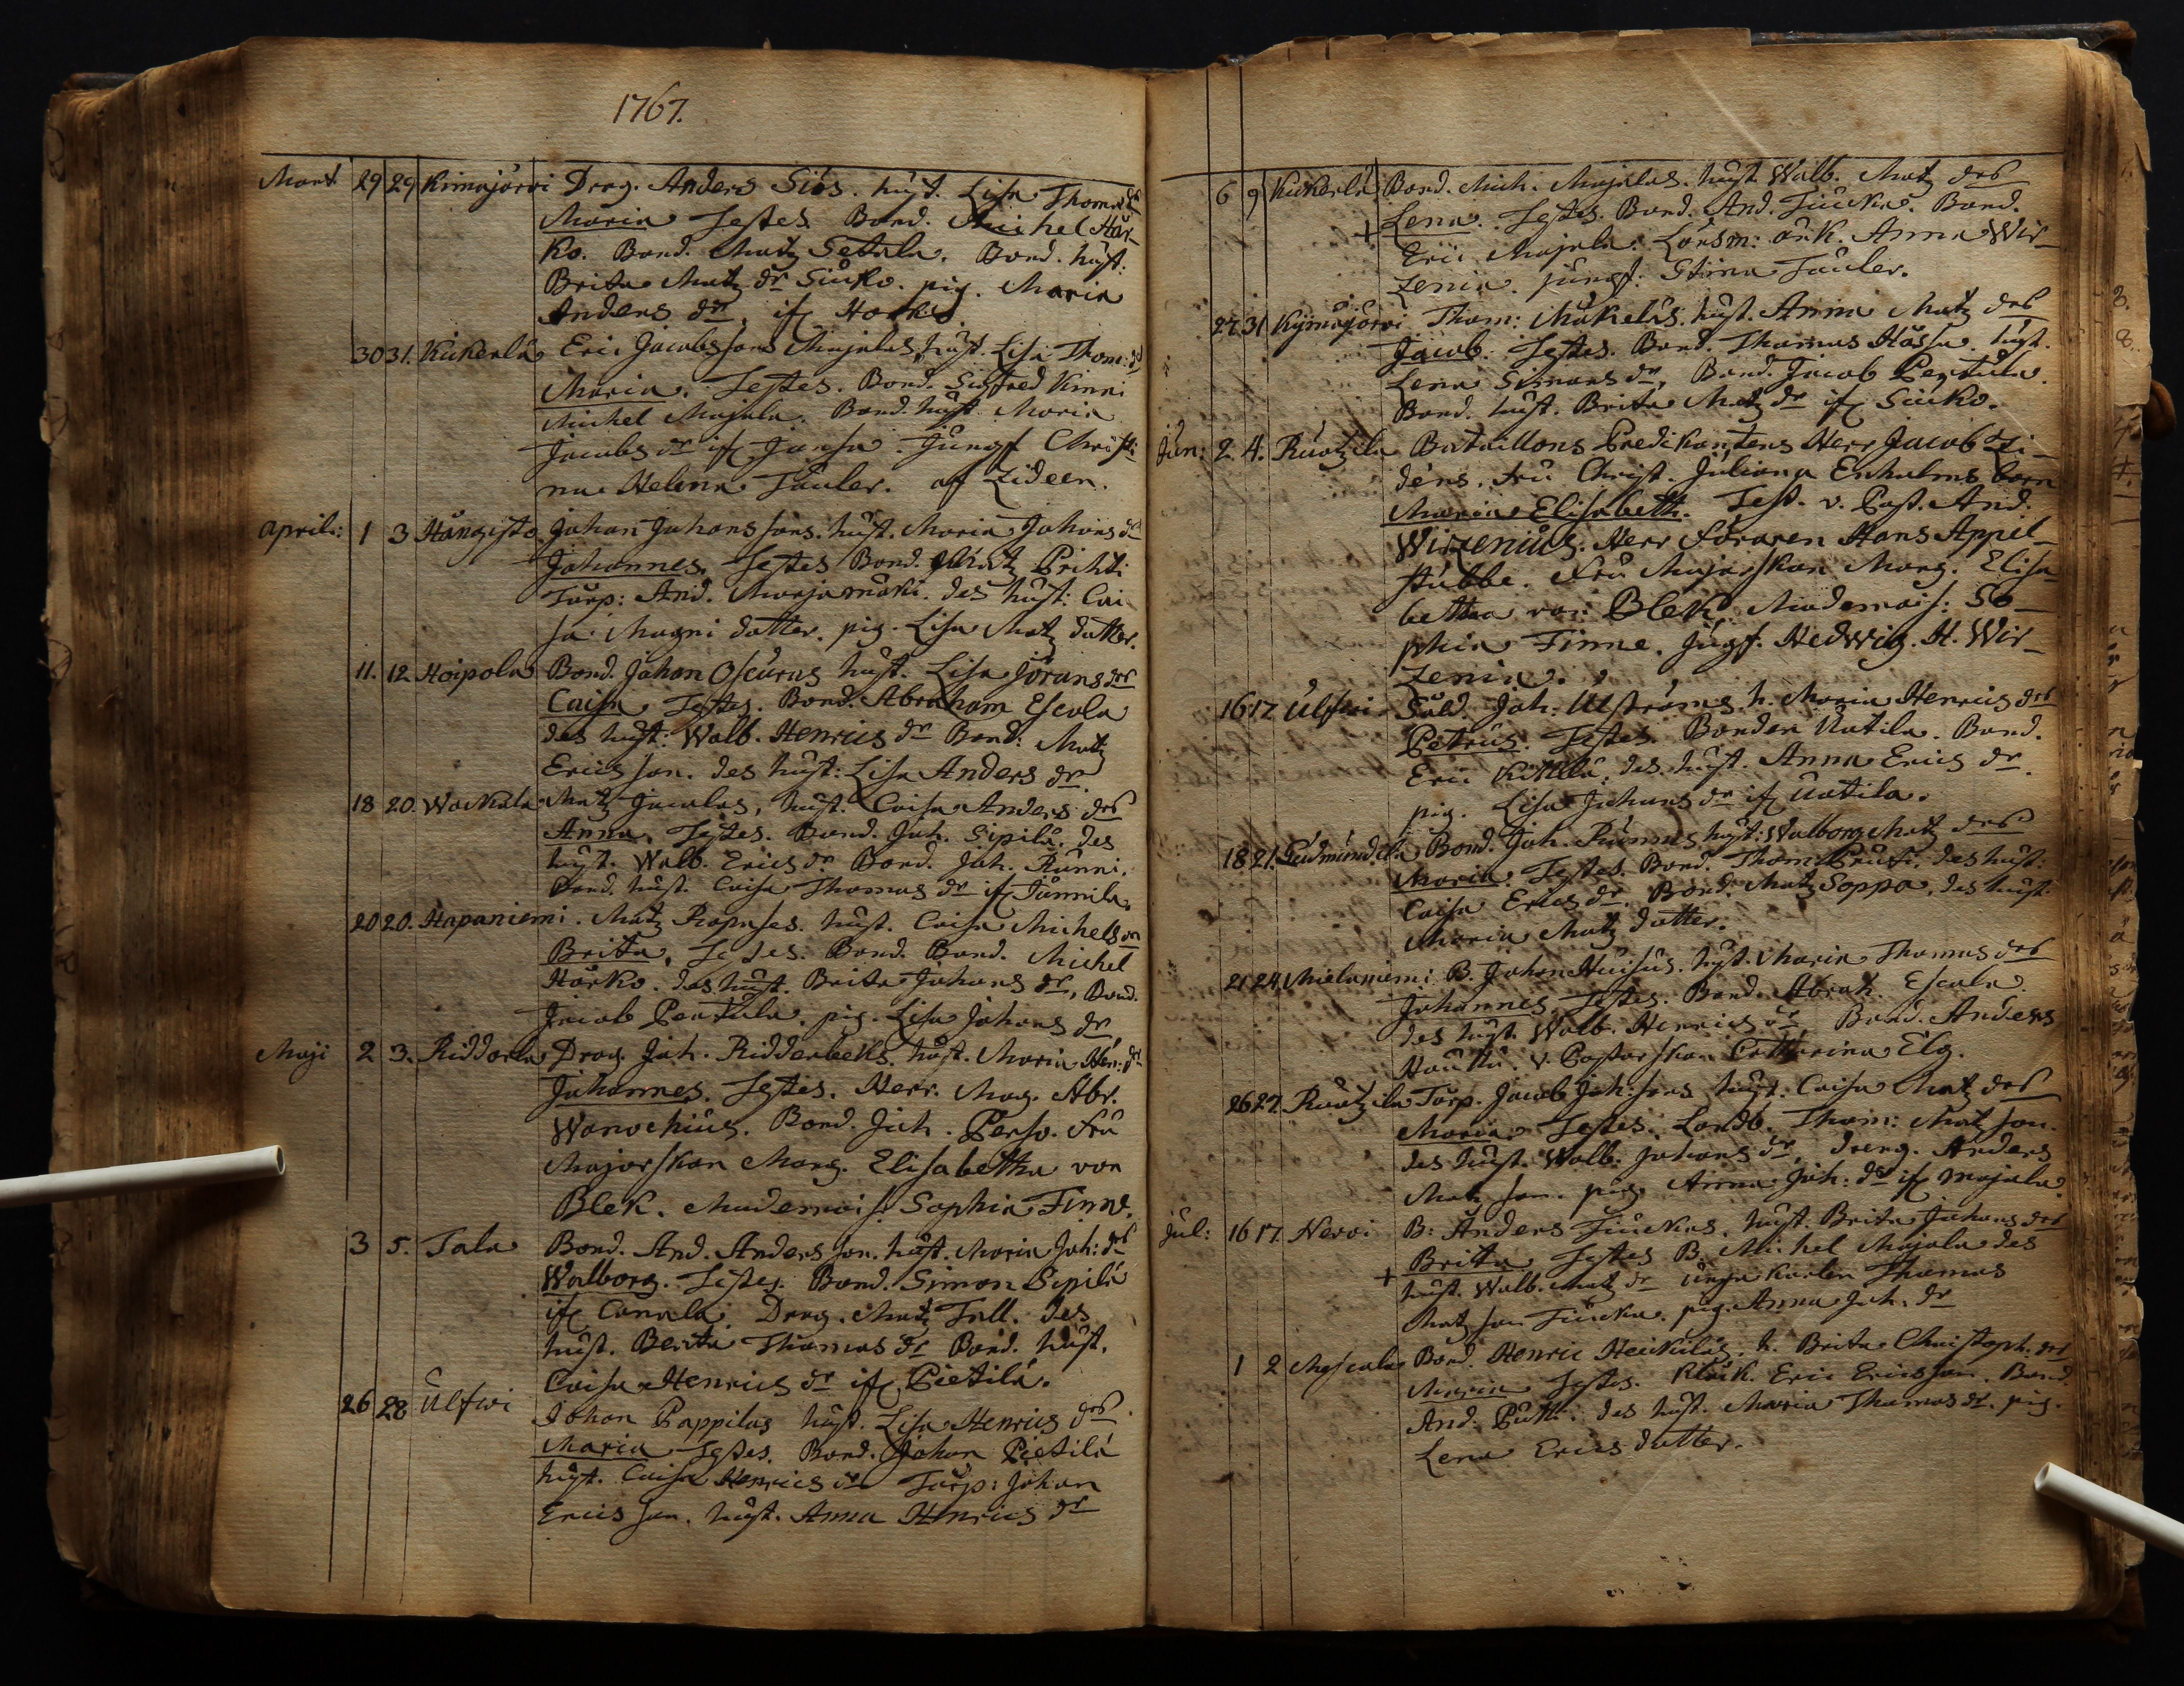 1767.
Mart 29 29 Kimajärvi Drag. Anders Siös. hust. Lisa Thomæ dr
Maria Testes Bond. Michel Här-
ko. Bond. Matz Setala. Bond. hust:
Brita Matz dr Siuko. pig. Maria
Anders dr. if Harko
30 31. Kickerlä Eric Jacobssons Majalas hust. Lisa Thom: dr
Maria. Testes. Bond. Sigfred Kinni
Michel Majala. Bond. hust Maria
Jacobs dr if Jansa. Jungf Christi
na Helena Tauler. af Zideen.
April: 1 3 Hångisto. Johan Johanssons. hust. Maria Johans dr
Johannes. Testes Bond. Matz Prihti
Torp: And. Marjamäki. des hust: Cai
sa Magni dotter. pig. Lisa Matz dotter.
11. 12. Hoipola Bond. Johan Oscaras hust. Lisa Jörans drs
Caisa Testes. Bond. Abraham Escola
des hust: Walb. Henrics dr Bond: Matz
Ericsson. des hust: Lisa Anders dr.
18 20. Wackala Matz Jacalas, hust. Caisa Anders drs
Anna. Testes. Bond. Joh. Sipilä. des
hust. Walb. Erics dr. Bond. Joh. Runni.
Bond. hust. Caisa Thomas dr if Junnila.
20 20. Hapaniemi. Matz Rapases. hust. Caisa Michels dr
Brita. Testes. Bond. Bond. Michel
Harko. des hust. Brita Johans dr, Bond.
Jacob Pentala. pig. Lisa Johans dr
Maji 2 3. Riddarla Drag. Joh. Ridderbecks. hust. Maria Hen: dr
Johannes. Testes. Herr. Mag. Abr.
Wanochius. Bond. Joh. Perso. Fru
Majorskan Marg. Elisabetha von
Blek. Mademois: Sophia Finne.
3 5. Tala Bond. And. Andersson. hust. Maria Joh: drs
Walborg. Testes. Bond. Simon Sipilä
if Canala. Drag. Matz Tall. des
hust. Berita Thomas dr Bond. hust.
Caisa Henrics dr if Pietilä.
26 28 Ulfwi Johan Pappilas hust. Lisa Henrics drs
Maria Testes. Bond. Johan Pietilä
hust. Caisa Henrics dr Torp: Johan
Ericsson. hust. Anna Henrics dr
6 9 Kickerlä Bond. Mich. Majalas. hust. Walb. Matz drs
+ Lena. Testes. Bond. And. Tuicka. Bond.
Eric Majala. Länsm: änk. Anna Wir-
zenia. jungf: Stina Tauler.
27. 31 Kymäjärvi Thom: Mäkeläs. hust. Anna Matz drs
Jacob. Testes. Bond. Thomas Hassa. hust.
Lena Simons dr, Bond. Jacob Pentala.
Bond. hust. Brita Matz dr if Siuko.
Jun: 2. 4. Ruotzila Bataillons Predikantens Herr Jacob Zi-
déns. Fru Christ. Juliana Enholms barn
Maria Elisabeth. Test. v. Past. And.
Wirzenius. Herr Föraren Hans Appel-
stubbe. Fru Majorskan Marg. Elisa-
betha von Blek. Mademois: So-
phia Finne. Jugf. Hedwig. H. Wir-
zenia.
16 17 Ulfwi Sold. Joh. Ulströms. h. Maria Henrics drs
Petrus. Testes. Bonden Uotila. Bond.
Eric Kittila. des hust. Anna Erics dr.
pig. Lisa Johans dr if Uotila.
18 21. Gudmundila Bond. Joh. Runnus. hust: Walborg Matz drs
Maria. Testes. Bond. Thom. Prusi. des hust:
Caisa Erics dr. Bond. Matz Soppa. des hust.
Maria Matz dotter.
21 24. Mielaniemi B. Johan Huisus. hust. Maria Thomas drs
Johannes. Testes. Bond. Abrah. Escala.
des hust. Walb. Henrics dr, Bond. Anders
Hauthi. v. Pastorskan Catharina Elg.
26 27. Ruotzila Torp. Jacob Joh:sons hust: Caisa Matz drs
Maria. Testes. Landb. Thom: Matsson.
des hust. Walb: Johans dr, dreng. Anders
Matsson. pig. Anna Joh: dr if Majala
Jul: 16 17. Nervi B: Anders Tuickas. hust: Brita Johans drs
+ Brita Testes B. Michel Majala des
hust. Walb. Matz dr unga karlen Thomas
Matzson Tuicka. pig. Anna Joh. dr
1 2 Mescala Bond. Henric Heickilas. h. Brita Christoph. drs
Maria Testes. Klåck. Eric Ericsson. Bond.
And. Putti. des hust. Maria Thomas dr. pig.
Lena Erics dotter.